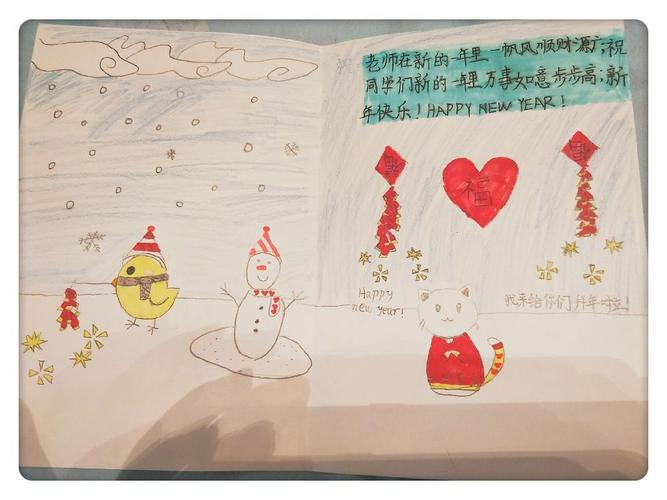 老师在新的一年里一帆风顺财源广;祝
同学们新的一年里万事如意步步高;新
年快乐!HAPPY NEW YEAR!
福
Happy
new year!
我来给你们拜年啦!